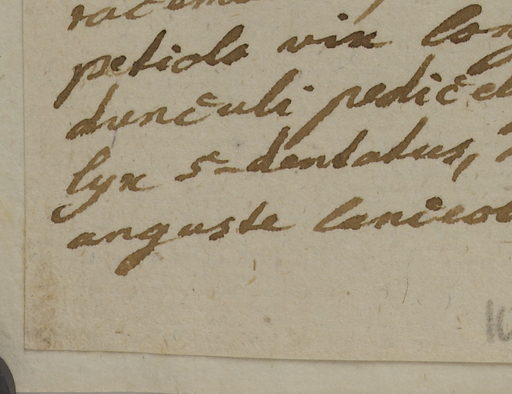 racem
petiolo vix lon
dunculi pedicel
lyx 5-dentatus,
anguste lanceol
10